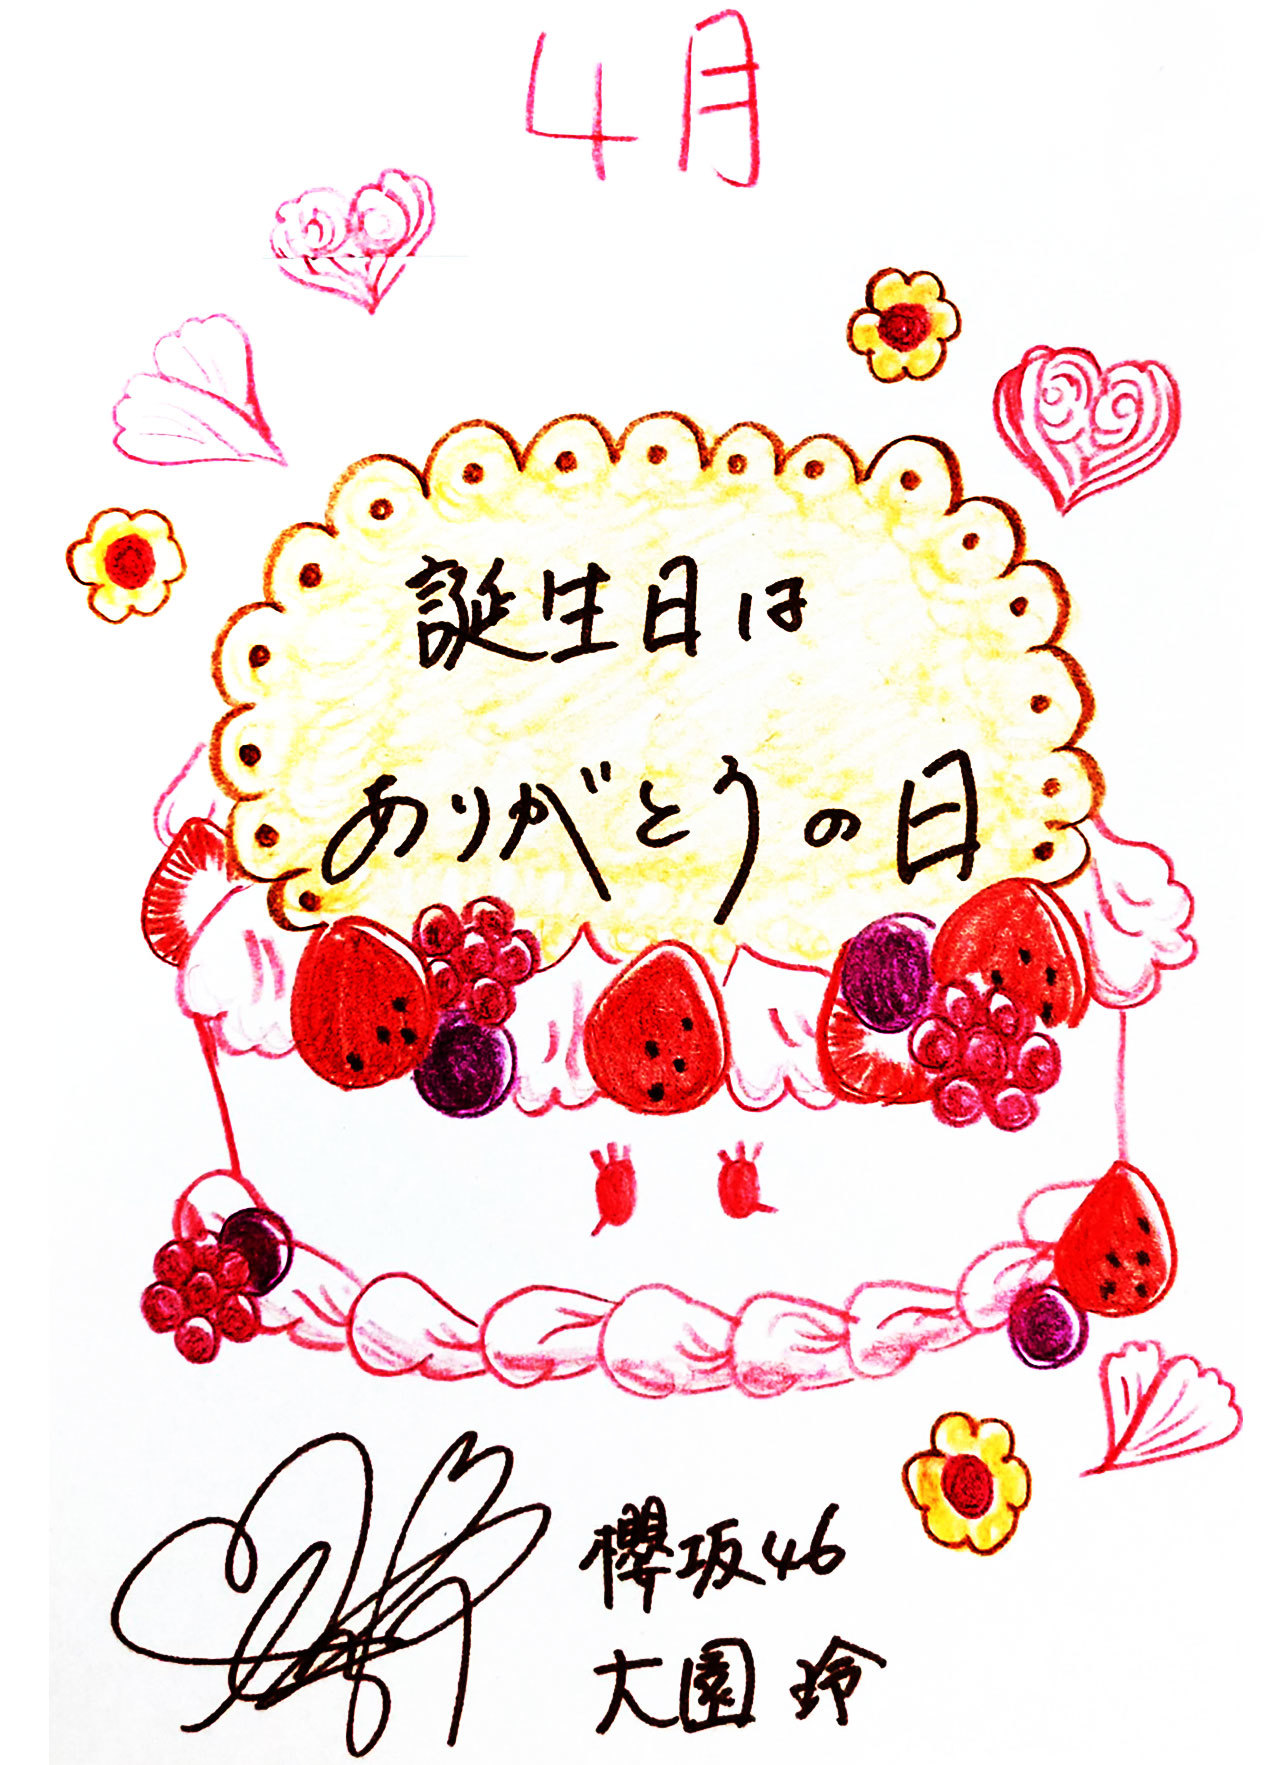 4月
誕生日は
ありがとうの日
櫻坂46
大園 玲